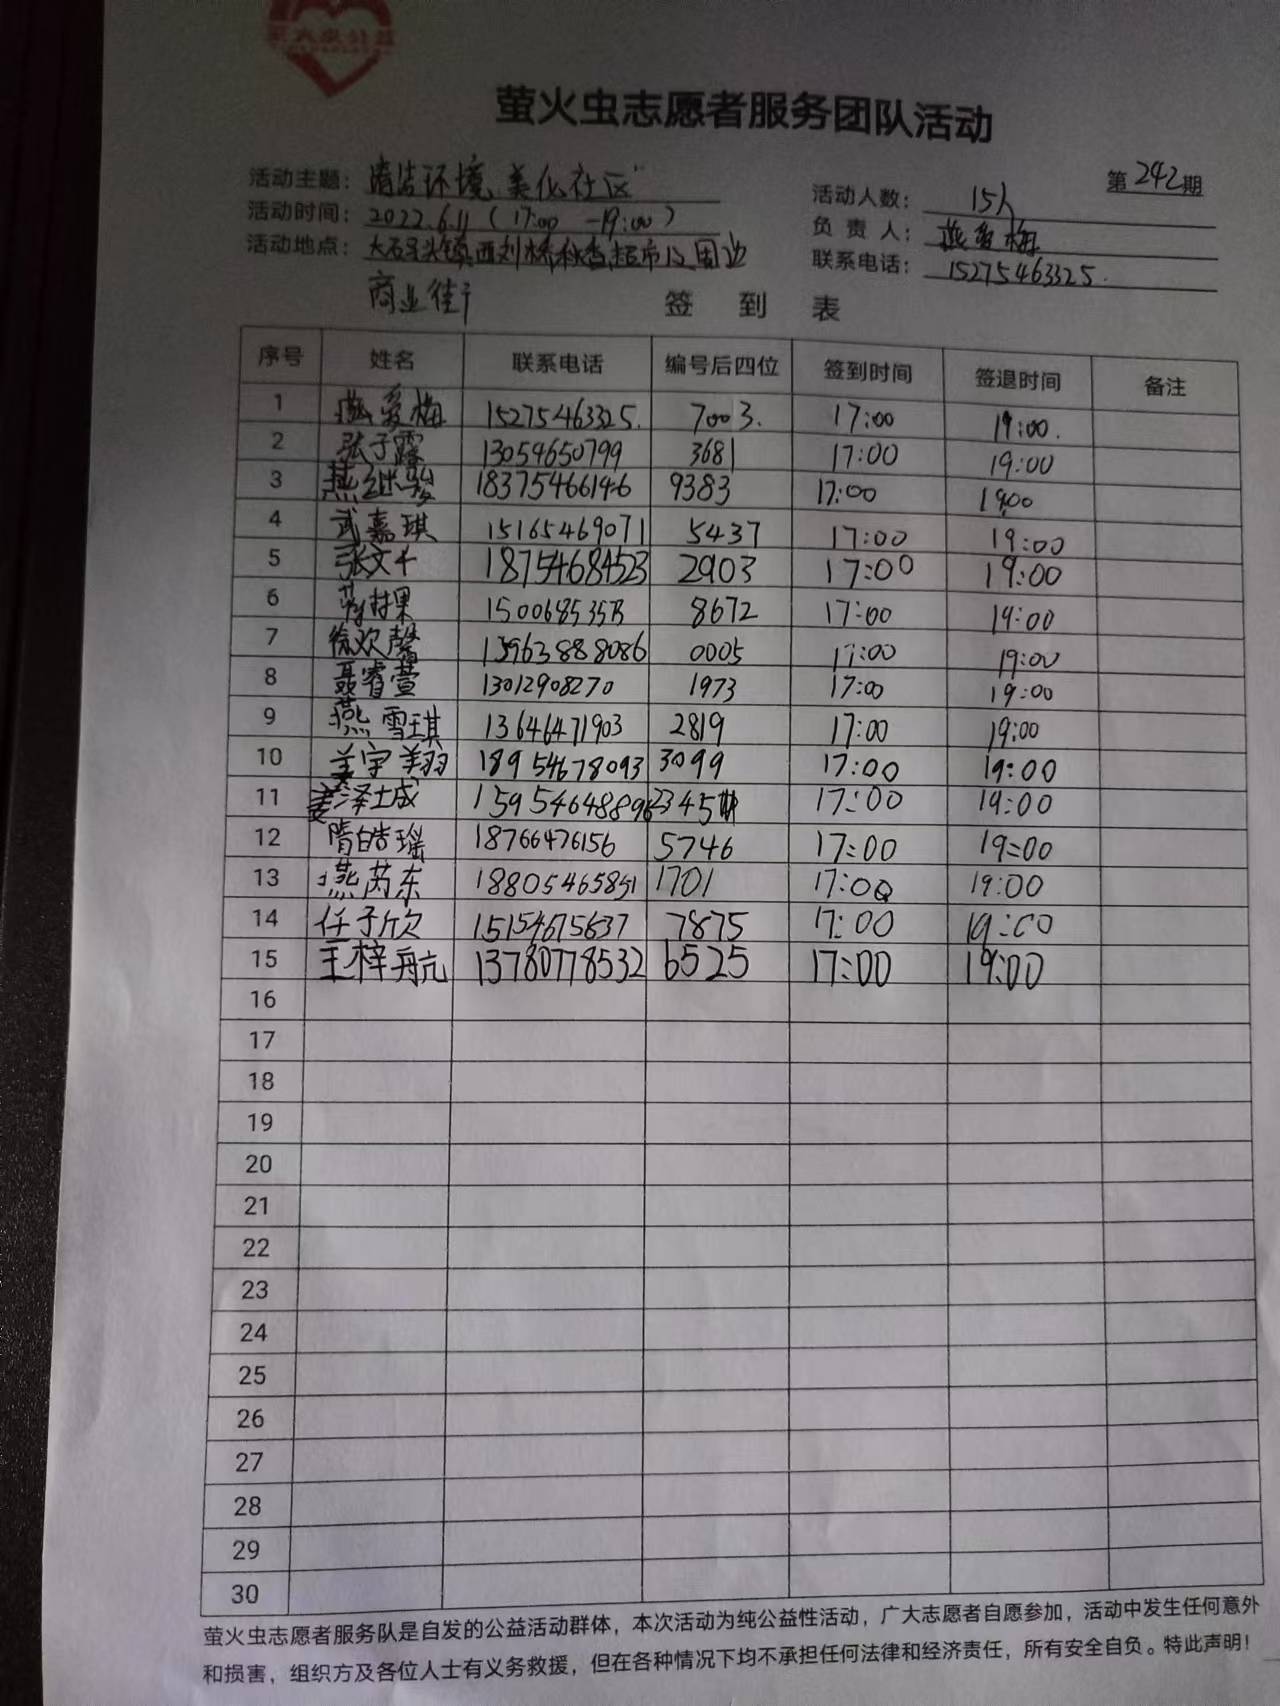 萤火虫志愿者服务团队活动
第242期
活动主题：清洁环境 美化社区"
活动人数：15人
活动时间：2022.6.11（17:00 —19:00）
负责人：燕爱梅
活动地点：大码头镇西刘桥秋香超市及周边
联系电话：15275463325.
商业街
签到表
序号 姓名 联系电话 编号后四位 签到时间 签退时间 备注
1 燕爱梅 15275463325. 7003. 17:00 19:00.
2 张子露 13054650799 3681 17:00 19:00
3 燕继骏 18375466146 9383 17:00 19:00
4 武嘉琪 15165469071 5437 17:00 19:00
5 张文千 18754684523 2903 17:00 19:00
6 8672 17:00 19:00
7 徐欢馨 13963888086 0005 17:00 19:00
8 聂睿萱 13012908270 1973 17:00 19:00
9 燕雪琪 13646471903 2819 17:00 19:00
10 姜宇翔 18954678093 3099 17:00 19:00
11 姜泽成 15954648896 17:00 19:00
12 隋皓瑶 18766476156 5746 17:00 19:00
13 燕芮东 18805465851 1701 17:00 19:00
14 任子欣 15154675637 7875 17:00 19:00
15 王梓航 13780778532 6525 17:00 19:00
16
17
18
19
20
21
22
23
24
25
26
27
28
29
30
萤火虫志愿者服务队是自发的公益活动群体，本次活动为纯公益性活动，广大志愿者自愿参加，活动中发生任何意外
和损害，组织方及各位人士有义务救援，但在各种情况下均不承担任何法律和经济责任，所有安全自负。特此声明！